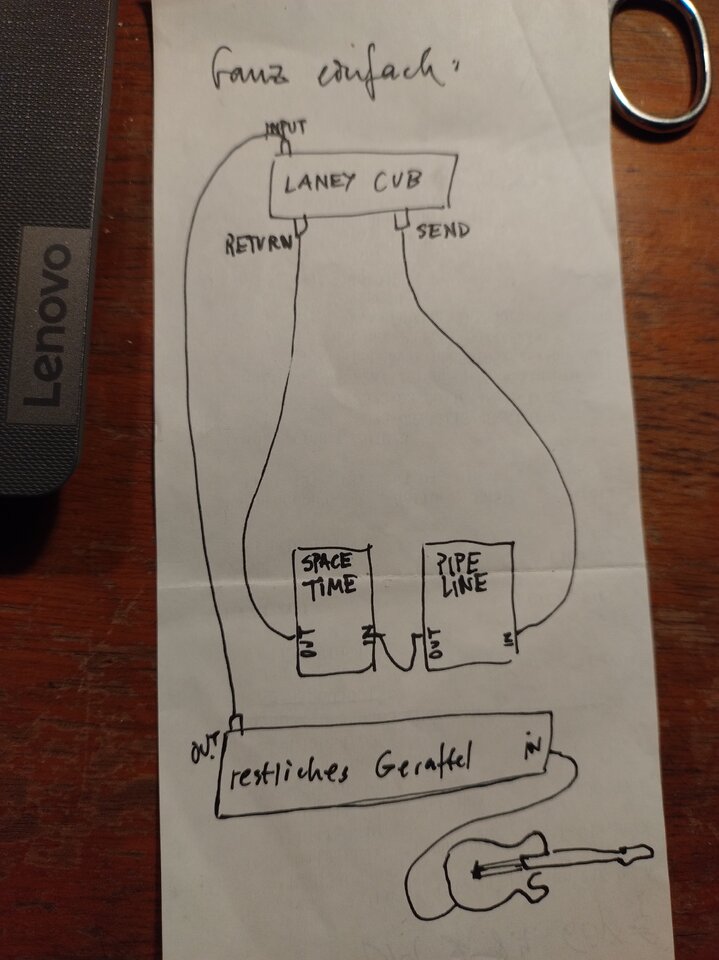 Ganz einfach:
INPUT
LANEY CUB
RETURN
SEND
Lenovo
SPACE
TIME
PIPE
LINE
OUT
IN
OUT
IN
OUT
restliches Geraffel
IN